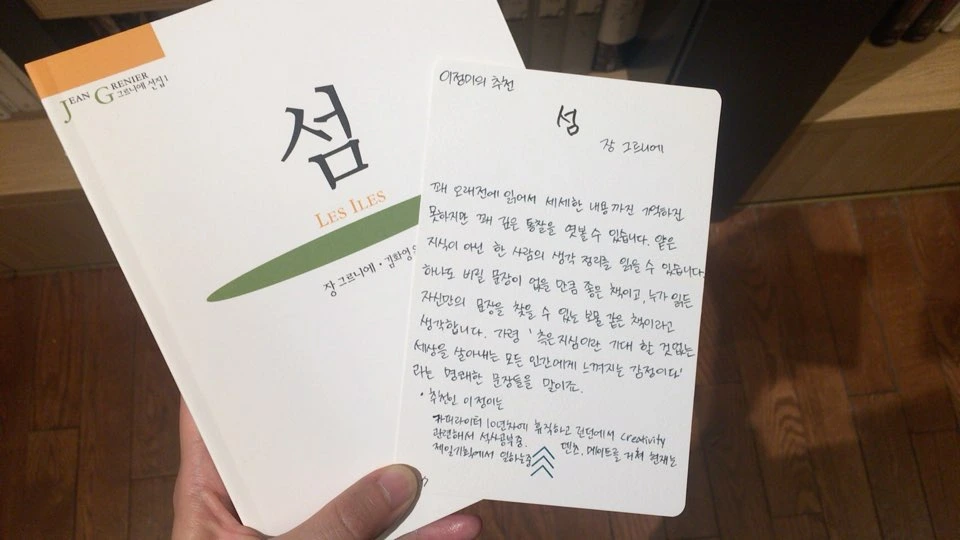 JEAN GRENIER
그르니에 선집 1
섬
LES ILES
장 그르니에 · 김화영
이정이의 추천
섬
장 그르니에
꽤 오래전에 읽어서 세세한 내용까진 기억하진
못하지만 꽤 깊은 통찰을 엿볼 수 있습니다. 얕은
지식이 아닌 한 사람의 생각 정리를 읽을 수 있습니다.
하나도 버릴 문장이 없을 만큼 좋은 책이고, 누가 읽든
자신만의 문장을 찾을 수 있는 보물 같은 책이라고
생각합니다. 가령 '측은지심이란 기대 할 것없는
세상을 살아내는 모든 인간에게 느껴지는 감정이다'
라는 명쾌한 문장들을 말이죠.
· 추천인 이정이는
카피라이터 10년차에 휴직하고 런던에서 creativity
관련해서 석사공부중. 덴츠, 메이트를 거쳐 현재는
제일기획에서 일하는중